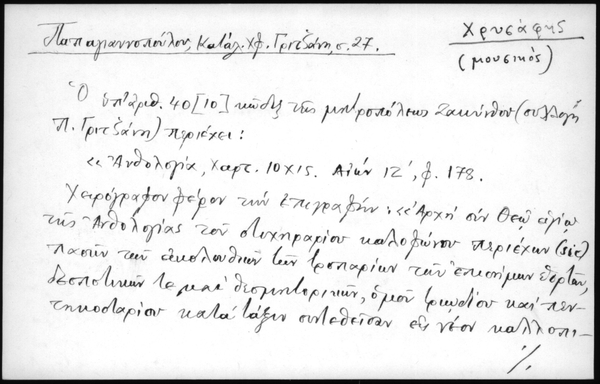 Παπαγιαννοπούλου, Κατάλ. Χφ. Γριτζάνη, σ. 27.
Χρυσάφης
(μουσικός)
Ὁ ὑπ' ἀριθ. 40 [10] κῶδιξ τῆς μητροπόλεως Ζακύνθου (συλλογή
Π. Γριτζάνη) περιέχει:
«Ἀνθολογία, χαρτ. 10Χ15. Αἰών ΙΖ΄, φ. 178.
Χειρόγραφον φέρον τήν ἐπιγραφήν: «Ἀρχή σύν Θεῷ ἁγίῳ
τῆς Ἀνθολογίας τοῦ στυχηραρίου καλοφώνου περιέχων (sic)
πασῶν τῶν ἀκολουθιῶν τῶν τροπαρίων τῶν ἐπισήμων ἑορτῶν,
δεσποτικῶν τε καί θεομητορικῶν, ὁμοῦ τριωδίου καί πεν-
τηκοσταρίου κατά τάξιν συντεθεῖσαν εἰς νέον καλλοπι-
./.